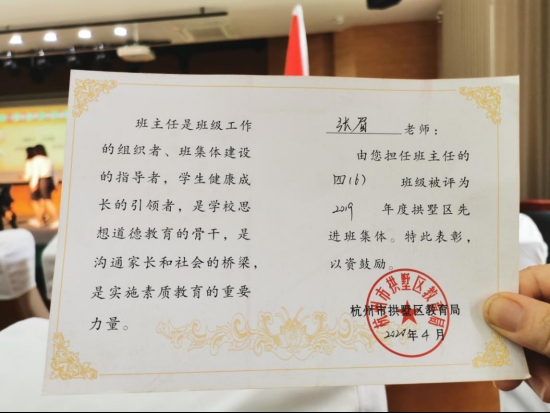 班主任是班级工作
的组织者、班集体建设
的指导者，学生健康成
长的引领者，是学校思
想道德教育的骨干，是
沟通家长和社会的桥梁，
是实施素质教育的重要
力量。
张眉 老师：
由您担任班主任的
四(6) 班级被评为
2019 年度拱墅区先
进班集体。特此表彰，
以资鼓励。
杭州市拱墅区教育局
2020年4月
杭州市拱墅区教育局